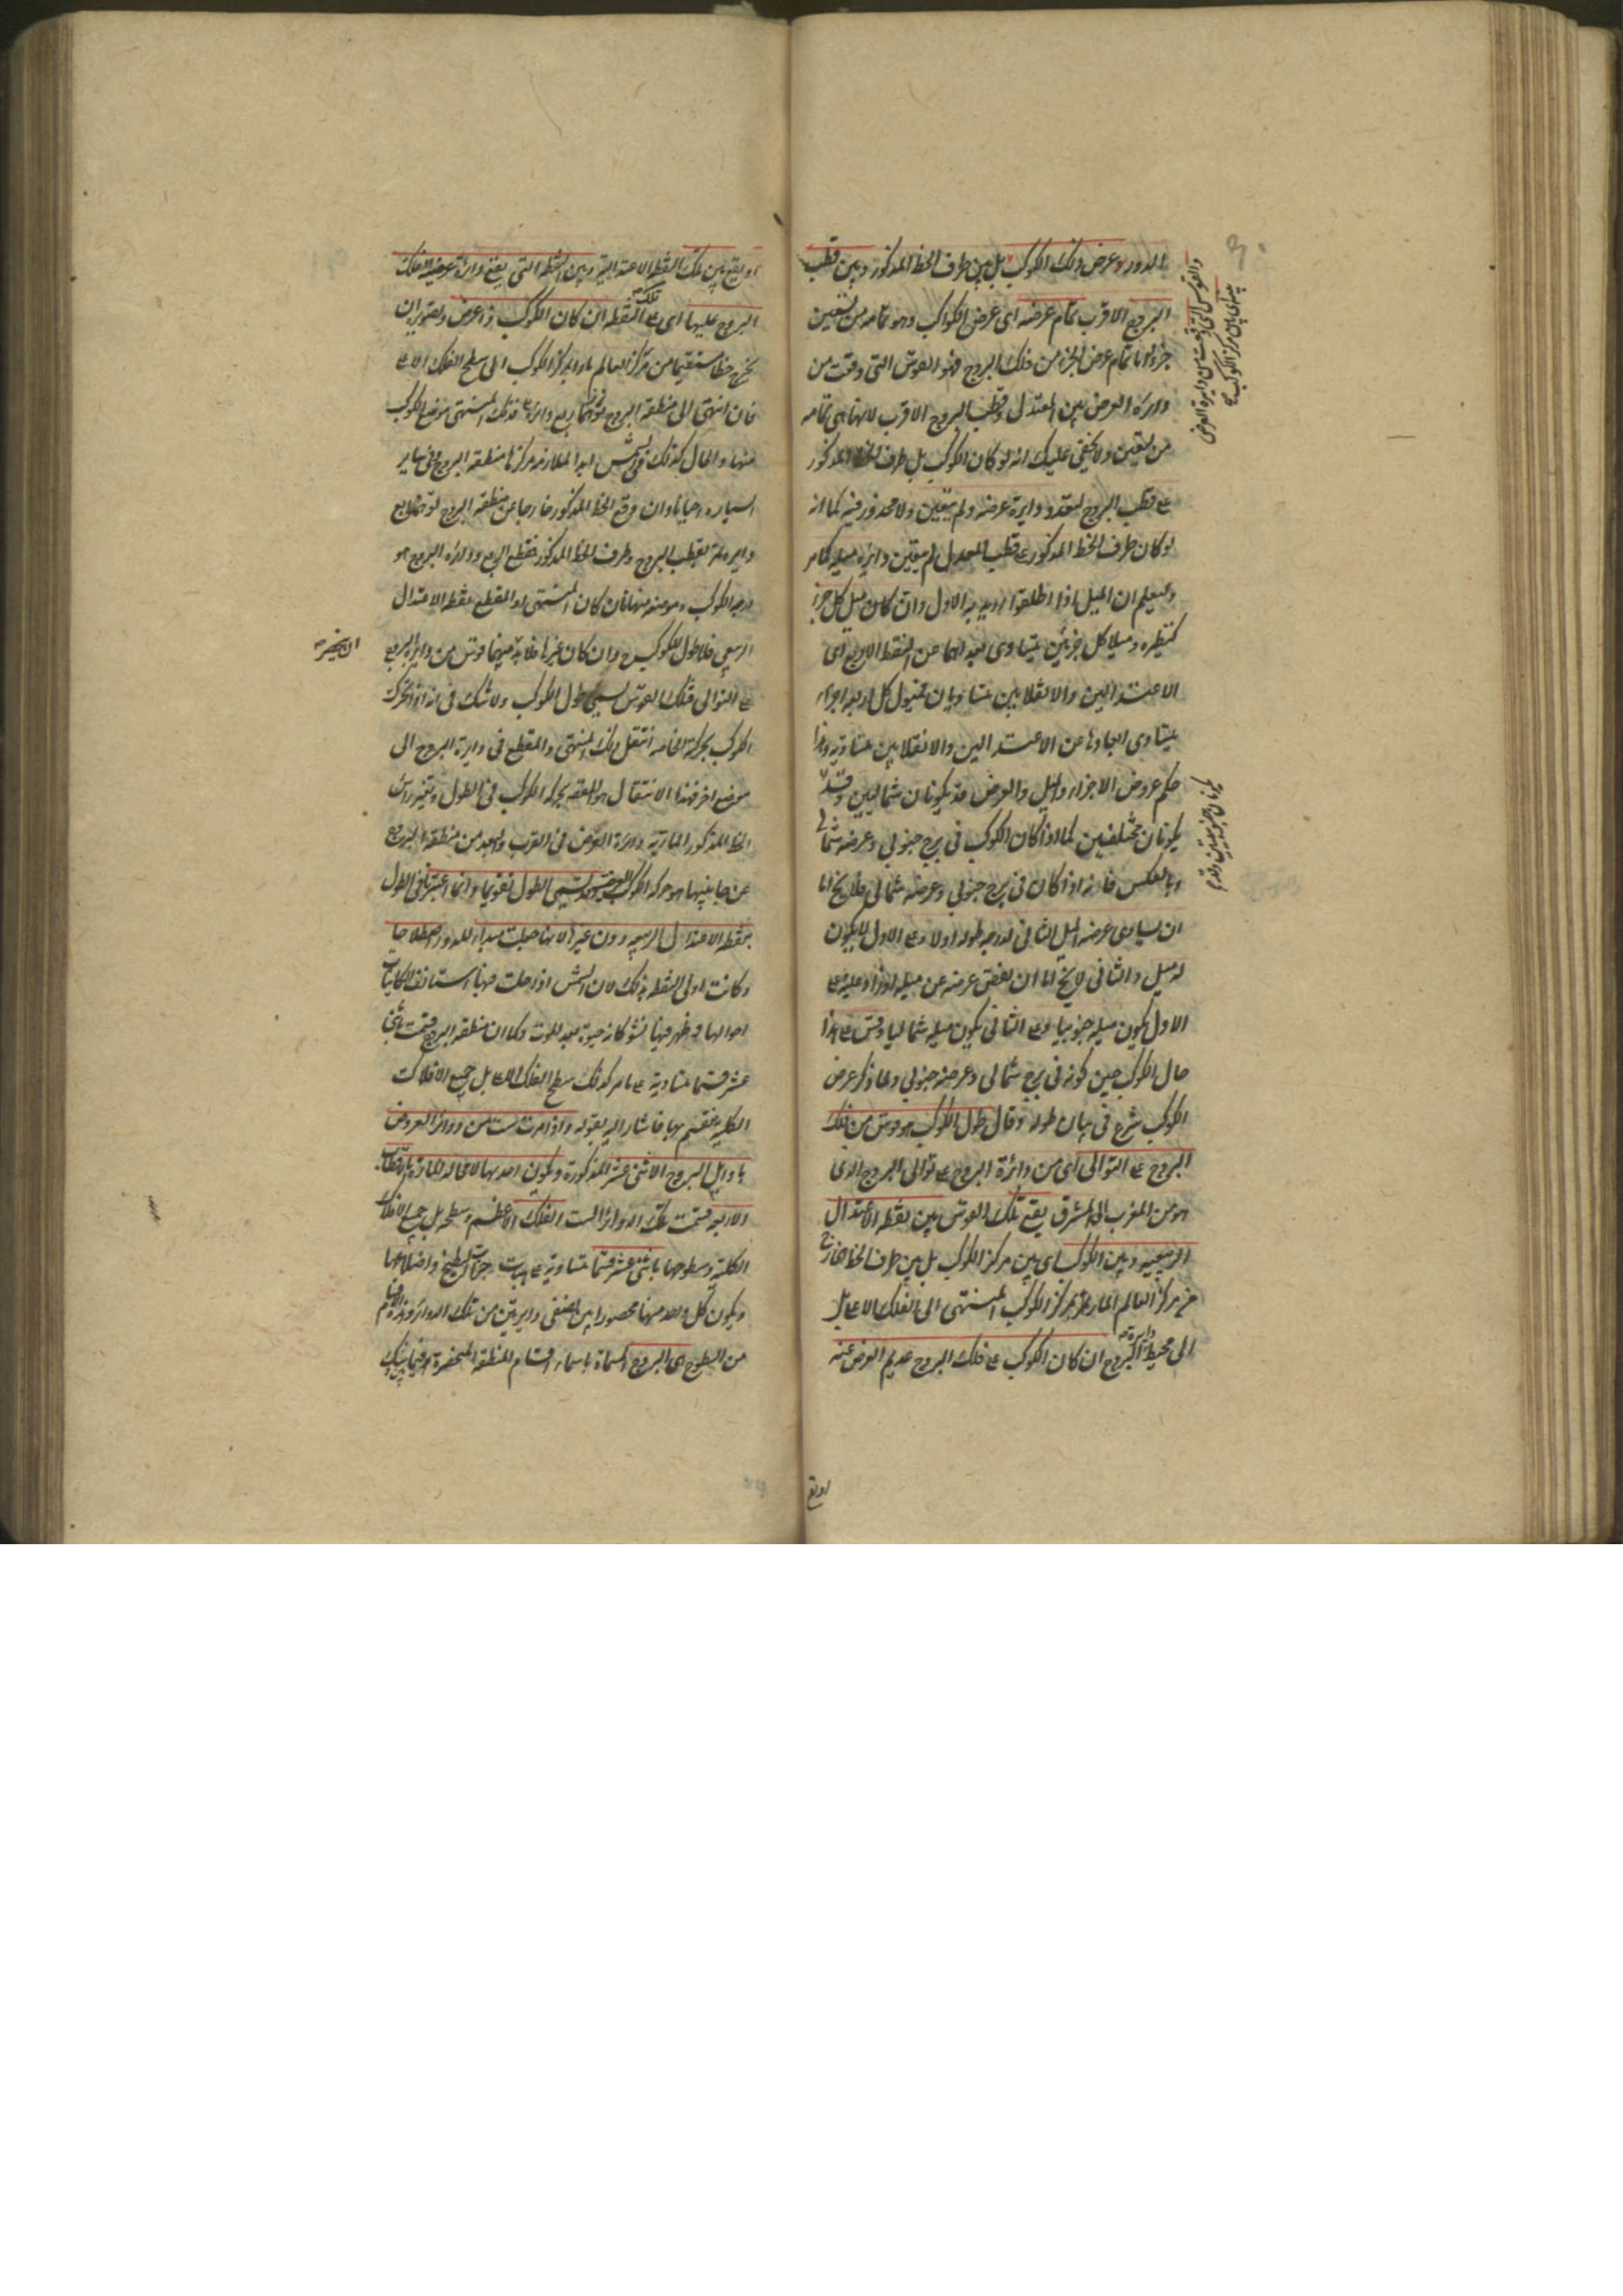 المذكور هو عرض ذلك الكوكب بل بين طرف الخط المذكور وبين قطب
البروج الاقرب تمام عرضه اى عرض الكواكب وهو تمامه من تسعين
جزءا واما تمام عرض الجزء من فلك البروج فهو القوس التى وقعت من
دائرة العرض بين المعتدل وقطب البروج الاقرب لانها هى تمامه
من تسعين ولا يخفى عليك انه لو كان الكوكب بل طرف الخط المذكور
على قطب البروج لتعدد دايرة عرضه ولم يتعين ولا محذور فيه كما انه
لو كان طرف الخط المذكور على قطب المعدل لم يتعين دايرة ميله كما مر
وليعلم ان الميل اذا اطلقوا اريد به الاول وان كان ميل كل جزء
كنظيره وميلا كل جزئين يتساوى بعداهما عن النقط الاربع اى
الاعتدالين والانقلابين متساويان فميول كل اربعة اجزاء
يتساوى ابعادها عن الاعتدالين والانقلابين متساوية وهذا
حكم عروض الاجزاء والميل والعرض قد يكونان شماليين وقد
يكونان مختلفين كما اذا كان الكوكب فى برج جنوبى وعرضه شمالى
او بالعكس فانه اذا كان فى برج جنوبى وعرضه شمالى فلا يخ اما
ان يساوى عرضه الميل الثانى لدرجة طوله اولا وعلى الاول لا يكون
له ميل والثانى لا يخ اما ان نقص عرضه عن ميله او زاد عليه فعلى
الاول يكون ميله جنوبيا وعلى الثانى يكون ميله شماليا وقس على هذا
حال الكوكب حين كونه فى برج شمالى وعرضه جنوبى ولما ذكر عرض
الكوكب شرع فى بيان طوله وقال طول الكوكب هو قوس من فلك
البروج على التوالى اى من دائرة البروج على توالى البروج الذى
هو من المغرب الى المشرق يقع تلك القوس بين نقطة الاعتدال
الربيعية وبين الكوكب اى بين مركز الكوكب بل بين طرف الخط الخارج
من مركز العالم المار بمركز الكوكب المنتهى الى الفلك الاعلى بل
الى محيط دايرة البروج ان كان الكوكب على فلك البروج عديم العرض عنه
والقوس التى وقعت من دايرة العرض
بينه اى بين مركز الكوكب
يكونان جنوبيين وقد
او يقع
او يقع بين تلك النقطة الاعتدالية وبين النقطة التى يقع دائرة عرضه الفلك
البروج عليها اى على تلك النقطة ان كان الكوكب ذا عرض وتصوير ان
يخرج خطا مستقيما من مركز العالم مارا بمركز الكوكب الى سطح الفلك الاعلى
فان انتهى الى منطقة البروج فذلك المنتهى موضع الكوكب
منها والحال كذلك فى الشمس ابدا لملازمة مركزها منطقة البروج وفى ساير
السيارة احيانا وان وقع الخط المذكور خارجا عن منطقة البروج توهمنا ربع
دايرة مارة بقطب البروج وطرف الخط المذكور فمقطع الربع ودائرة البروج هو
درجة الكوكب وموضعه منها فان كان المنتهى او المقطع نقطة الاعتدال
الربيعى فلا طول للكوكب ح وان كان غيرها فلا بد بينهما قوس من دايرة البروج
على التوالى فتلك القوس يسمى طول الكوكب ولا شك فى انه اذا تحرك
الكوكب بحركته الخاصة انتقل ذلك المنتهى والمقطع فى دايرة البروج الى
موضع اخر فهذا الانتقال هو المقصد بحركة الكوكب فى الطول وتغير راس
الخط المذكور المارة به دائرة العرض فى القرب والبعد من منطقة البروج
عن جانبيها هو حركة الكوكب ويسمى الطول تقويما وانما اعتبر فى الطول
نقطة الاعتدال الربيعية دون غيرها لانها جعلت مبداء للدور اصطلاحا
وكانت اولى النقط بذلك لان الشمس اذا حلت فيها استانف الكاينات
احوالها وظهر فيها نشو كانه حيوة بعد الموت وكما ان منطقة البروج قسمت باثنى
عشر قسما متساوية على ما مر كذلك سطح الفلك الاعلى بل جميع الافلاك
الكلية ينقسم بها فاشار اليه بقوله واذا مرت ست من دوائر العروض
باوايل البروج الاثنى عشر المذكورة ويكون احديها لا محالة المارة بالاقطاب
الاربعة قسمت تلك الدوائر الست الفلك الاعظم وسطحه بل جميع الافلاك
الكلية وسطوحها باثنى عشر قسما متساوية على هيات حزات البطيخ واضلاعها
ويكون كل واحد منها محصورا بين نصفى دايرتين من تلك الدوائر وهذه الاقسام
من السطوح هى البروج المسماة باسماء اقسام المنطقة المنحصرة فيما بينها